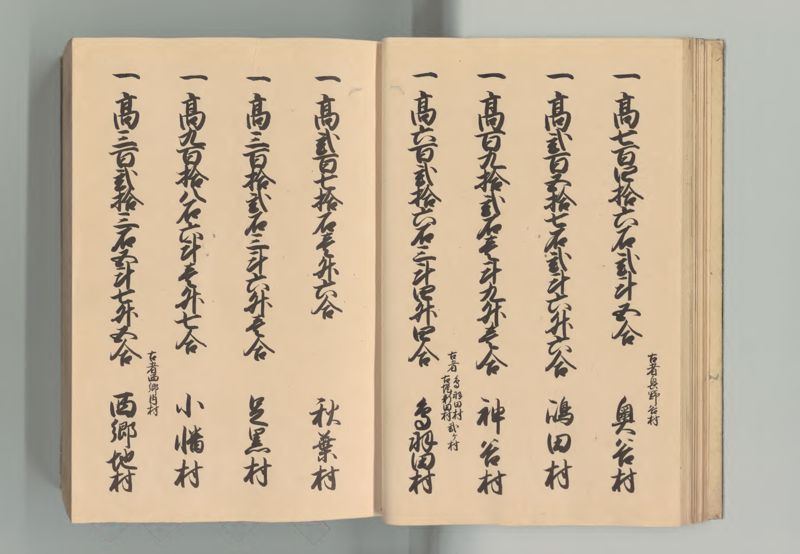 一 高七百四拾六石貳斗五合
古者奥野谷村
奥谷村
一 高貳百五拾七石貳斗六升六合
鴻田村
一 高百九拾貳石壱斗九升壱合
神谷村
一 高六百貳拾六石三斗四升四合
古者
鳥羽田村
村貳ヶ村
鳥羽田村
一 高貳百七拾石壱升六合
秋葉村
一 高三百拾貳石三斗六升壱合
足黒村
一 高九百拾八石六斗壱升七合
小幡村
一 高三百貳拾三石五斗七升五合
古者西郷内村
西郷地村